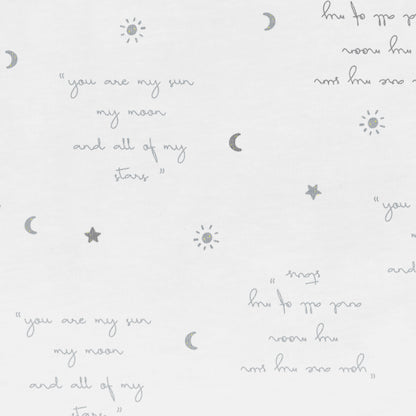 and all of my
my moon
you are my sun
“you are my sun
my moon
and all of my
stars”
“you
and
stars”
and all of my
my moon
“you are my sun
“you are my sun
my moon
and all of my
stars”